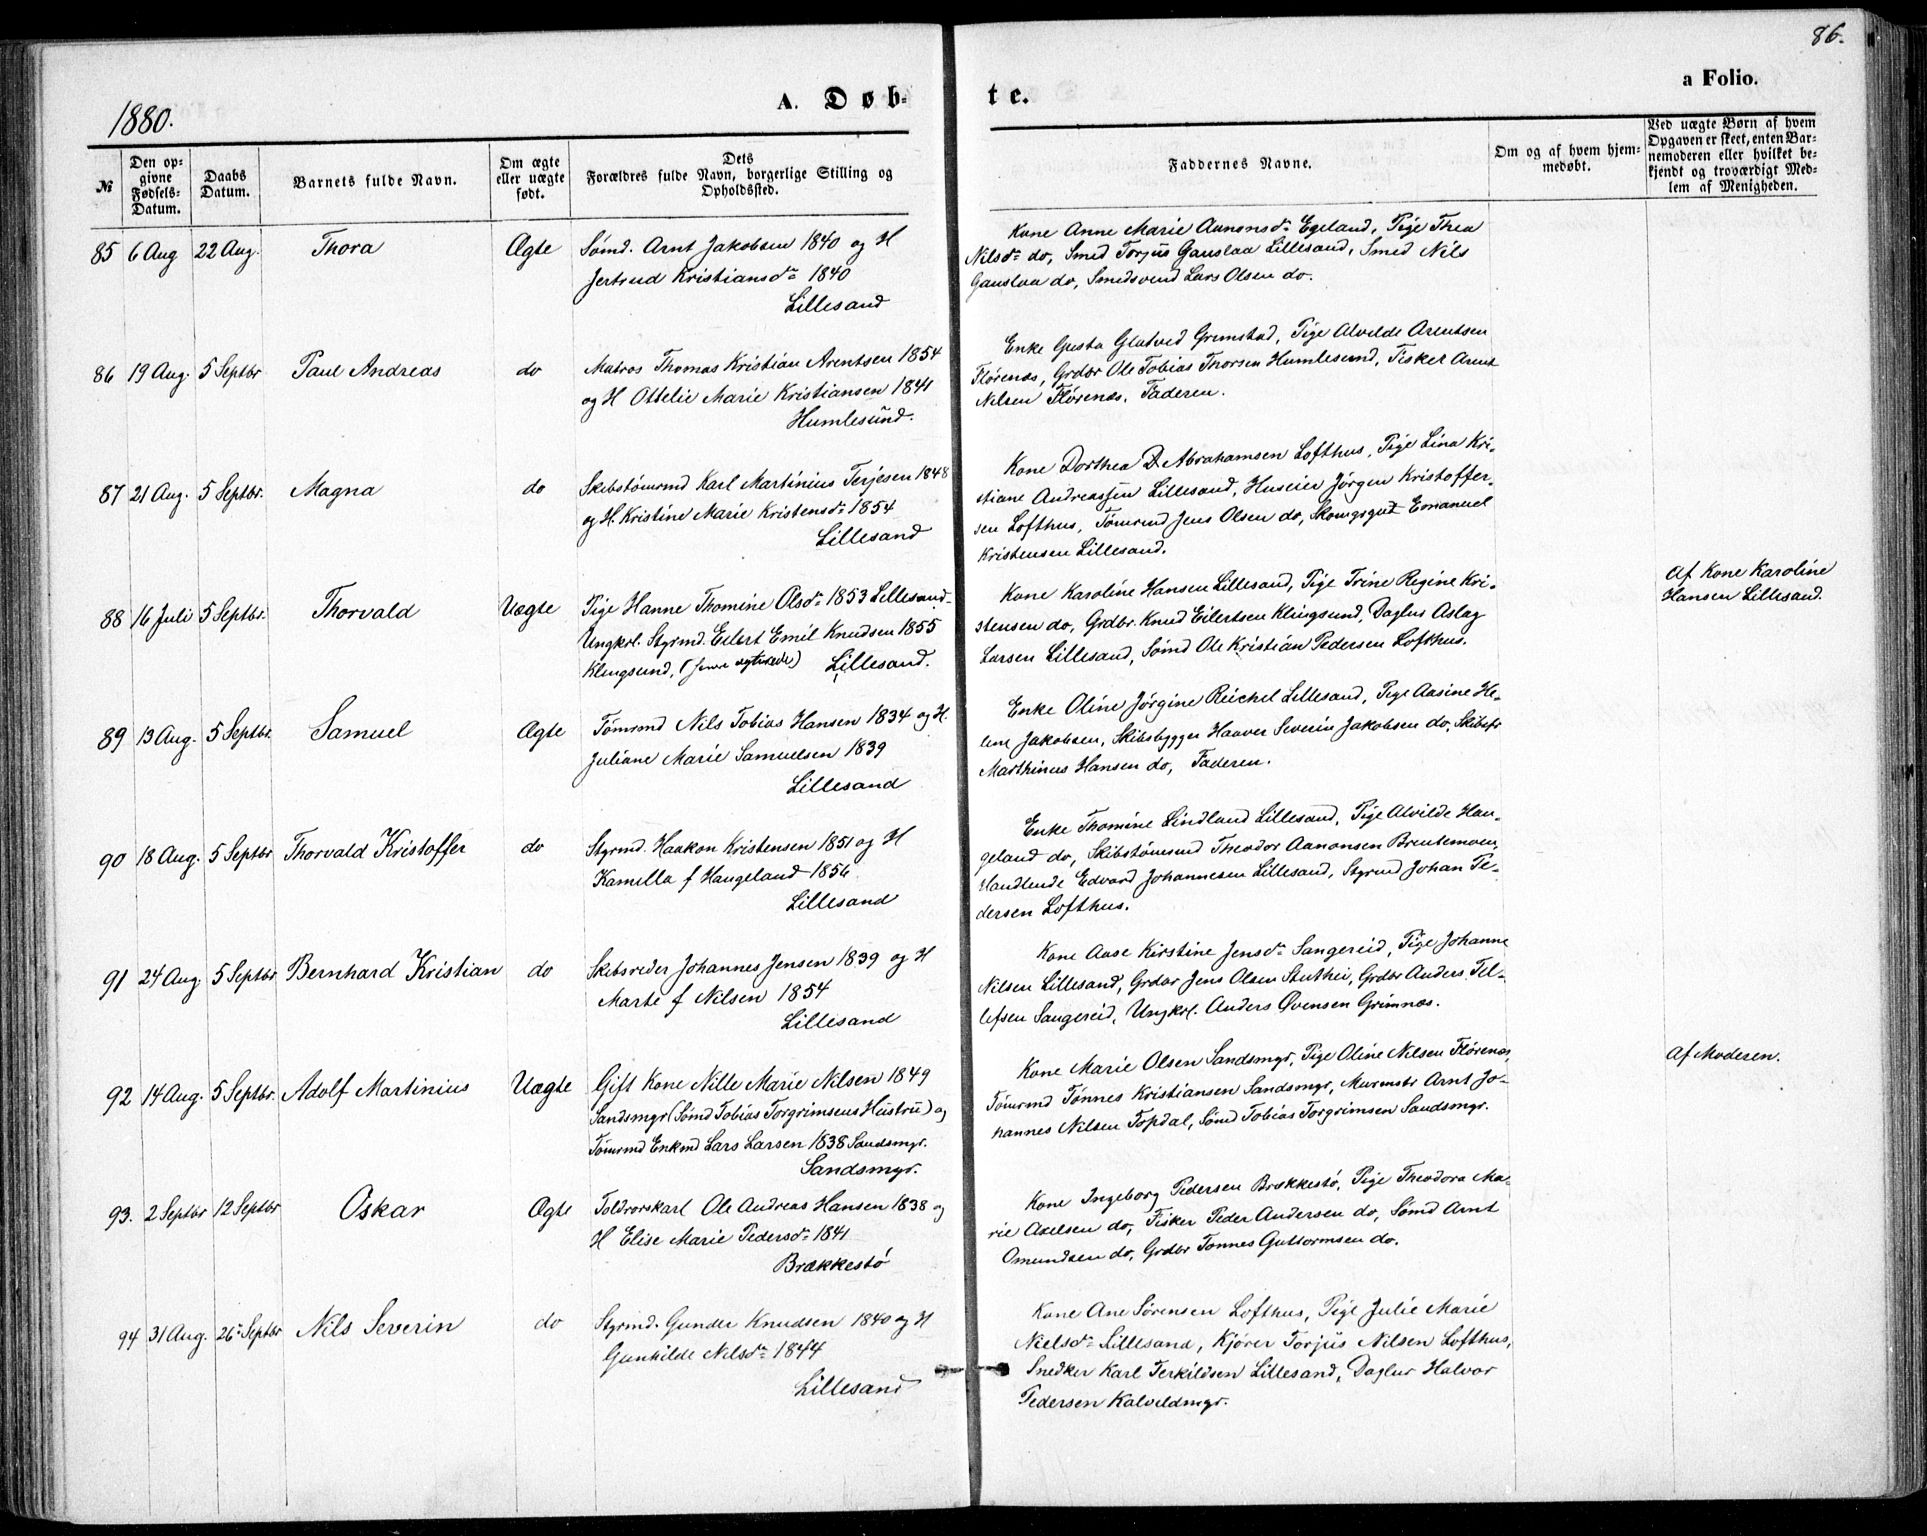 86.
1880.
A. Døb-
te.
a Folio.
№
Den op-
givne
Fødsels-
Datum.
Daabs
Datum.
Barnets fulde Navn.
Om ægte
eller uægte
født.
Dets
Forældres fulde Navn, borgerlige Stilling og
Opholdssted.
Faddernes Navne.
Om og af hvem hjem-
medøbt.
Ved uægte Børn af hvem
Opgaven er skeet, enten Bar-
nemoderen eller hvilket be-
kjendt og troværdigt Med-
lem af Menigheden.
85 6 Aug 22 Aug. Thora Ægte
Sømd. Arnt Jakobsen 1840 og H
Jertrud Kristiansdr 1840
Lillesand
Kone Anne Marie Aanonsdr Egeland, Pige Thea
Nilsdr do, Smed Torjus Gauslaa Lillesand, Smed Nils
Gauslaa do, Smedsvend Lars Olsen do.
86 19 Aug. 5 Septbr Paul Andreas do
Matros Thomas Kristian Arentsen 1854
og H Ottelie Marie Kristiansen 1841
Humlesund.
Enke Glatved Grimstad, Pige Alvilde Arentsen
Flørenæs, Grdbr Ole Tobias Thorsen Humlesund, Fisker Arent
Nilsen Flørenæs. Faderen.
87 21 Aug. 5 Septbr. Magna do
Skibstømrmd Karl Martinius Terjesen 1848
og H. Kristine Marie Kristensdr 1854
Lillesand
Kone Dorthea D. Abrahamsen Lofthus, Pige Lina Kri-
stiane Andreassen Lillesand, Huseier Jørgen Kristoffer-
sen Lofthus, Tømrmd Jens Olsen do, Emanuel
Kristensen Lillesand.
88 16 Juli 5 Septbr. Thorvald Uægte
Pige Hanne Thomine Olsdr 1853 Lillesand
Ungkrl. Styrmd. Eilert Emil Knudsen 1855
Klingsund, Lillesand.
Kone Karoline Hansen Lillesand, Pige Trine Regine Kri-
stensen do, Grdbr. Knud Eilertsen Klingsund, Daglnr Aslag
Larsen Lillesand, Sømd Ole Kristian Pedersen Lofthus.
Af Kone Karoline
Hansen Lillesand.
89 13 Aug. 5 Septbr. Samuel Ægte
Tømrmd Nils Tobias Hansen 1834 og H.
Juliane Marie Samuelsen 1839
Lillesand
Enke Oline Jørgine Reichel Lillesand, Pige Aasine He-
lene Jakobsen, Skibsbygger Haaver Severin Jakobsen do, Skibsfr
Marthinus Hansen do, Faderen.
90 18 Aug. 5 Septbr Thorvald Kristoffer do
Styrmd. Haakon Kristensen 1851 og H
Kamilla f Haugeland 1856
Lillesand
Enke Thomine Lindland Lillesand, Pige Alvilde Hau-
geland do, Skibstømrmd Theodor Aanonsen Brentemoen,
Handlende Edvard Johannesen Lillesand, Styrmd Johan Pe-
dersen Lofthus.
91 24 Aug 5 Septbr Bernhard Kristian do
Skibsreder Johannes Jensen 1839 og H
Marte f Nilsen 1854
Lillesand
Kone Aase Kirstine Jensdr Sangereid, Pige Johanne
Nilsen Lillesand, Grdbr Jens Olsen Stakkei, Grdbr Anders Tel-
lefsen Sangereid, Ungkrl. Anders Øvensen Grimnæs.
92 14 Aug. 5 Septbr. Adolf Martinius Uægte
Gift Kone Nille Marie Nilsen 1849
Sandsmyr (Sømd Tobias Torgrimsens Hustru) og
Tømrmd Enkmd Lars Larsen 1838 Sandsmyr.
Sandsmyr.
Kone Marie Olsen Sandsmyr, Pige Oline Nilsen Flørenæs,
Tømrmd Tønnes Kristiansen Sandsmyr, Murmstr Arnt Jo-
hannes Nilsen Topdal, Sømd Tobias Torgrimsen Sandsmyr.
Af Moderen.
93. 2 Septbr 12 Septbr Oskar Ægte
Toldrorskarl Ole Andreas Hansen 1838 og
H Elise Marie Pedersdr 1841
Brækkestø
Kone Ingeborg Pedersen Brækkestø, Pige Theodora Ma-
rie Axelsen do, Fisker Peder Andersen do, Sømd Arnt
Omundsen do, Grdbr Tønnes Guttormsen do.
94 31 Aug. 26 Septbr Nils Severin do
Styrmd. Gunder Knudsen 1840 og H
Gunhilde Nilsdr 1844
Lillesand
Kone Ane Sørensen Lofthus, Pige Julie Marie
Nielsdr Lillesand, Kjører Torjus Nilsen Lofthus,
Snedker Karl Terkildsen Lillesand, Daglnr Halvor
Pedersen Kalvildmyr.